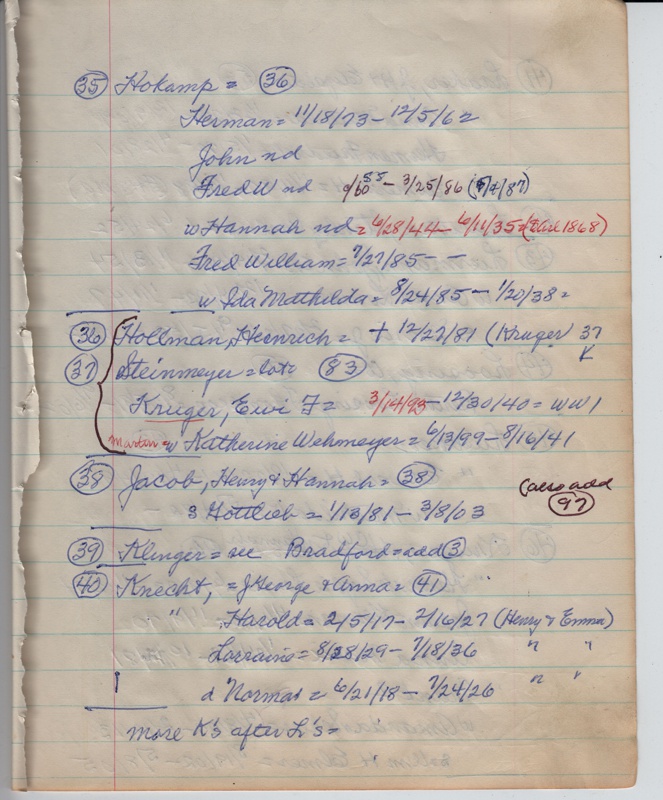 35 Hokamp = 36
Herman = 11/18/73 - 12/5/62
John nd
Fred W nd - 3/25/86
w Hannah nd = 6/28/44 - 6/11/35 = 1868)
Fred William = 7/27/85 - -
w Ida Mathilda = 8/24/85 - 1/20/38 =
36 Hollman, Heinrich = + 12/27/81 (Kruger 37
37 Steinmeyer = lot 83
Kruger, Ewi F = 3/14/93 - 12/30/40 = WW1
w Katherine Wehmeyer = 6/13/99 - 8/16/41
38 Jacob, Henry & Hannah = 38
(also add 97
s Gottlieb = 1/13/81 - 3/8/03
39 Klinger = see Bradford = add 3
40 Knecht, = J George & Anna = 41
" Harold = 2/5/17 - 2/16/27 (Henry & Emma)
Lorraine = 8/28/29 - 7/18/36 " "
d Norma = 6/21/18 - 7/24/26 " "
more K's after L's =